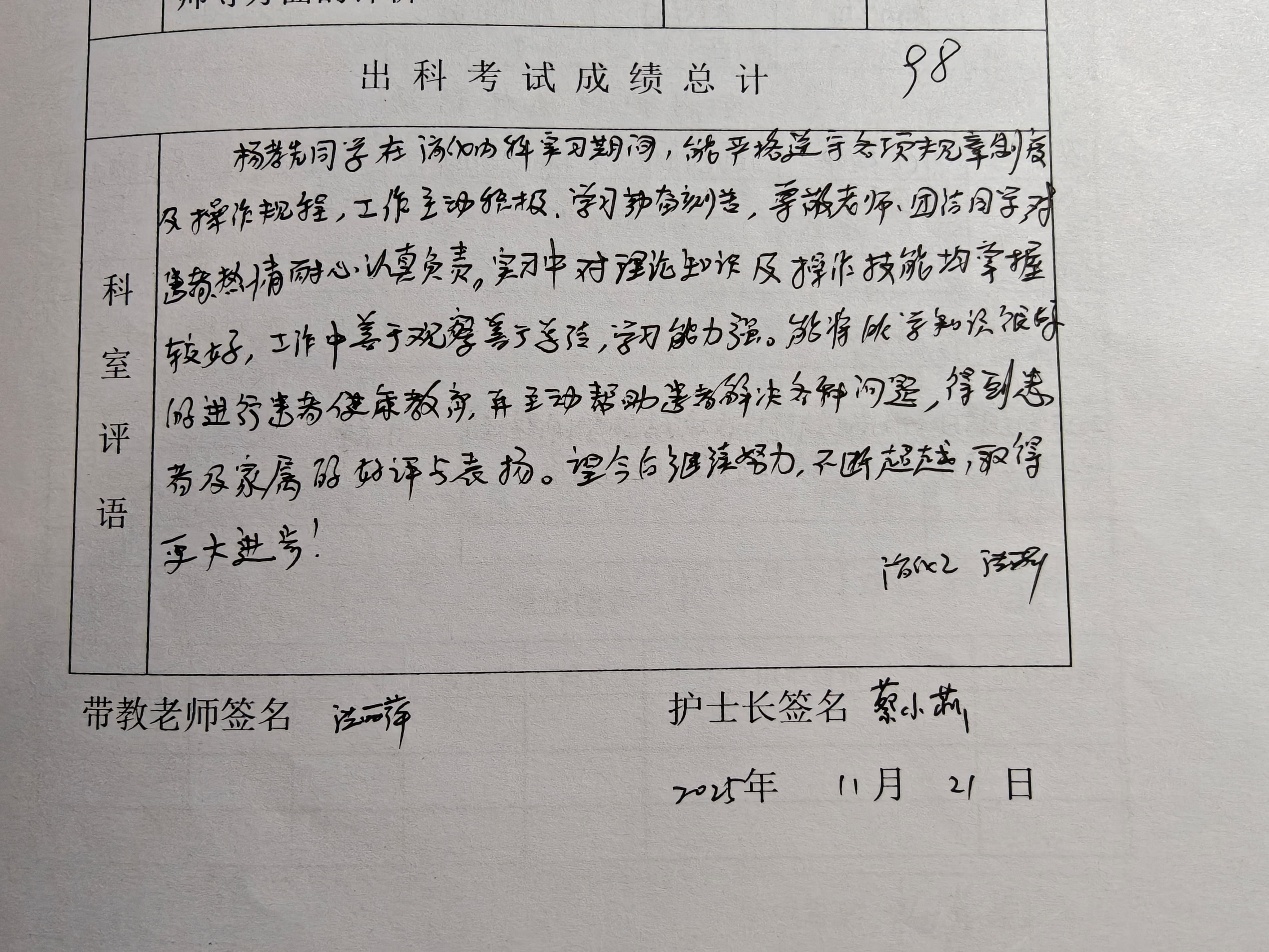 出科考试成绩总计 98
科室评语
杨孝先同学在消化内科实习期间，能严格遵守各项规章制度
及操作规程，工作主动积极、学习勤奋刻苦，尊敬老师、团结同学对
患者热情耐心、认真负责。实习中对理论知识及操作技能均掌握
较好，工作中善于观察善于总结，学习能力强。能将所学知识很好
的进行患者健康教育，并主动帮助患者解决各种问题，得到患
者及家属的好评与表扬。望今后继续努力，不断超越，取得
更大进步！
消化2
带教老师签名
护士长签名 蔡小莉
2025年 11月 21日